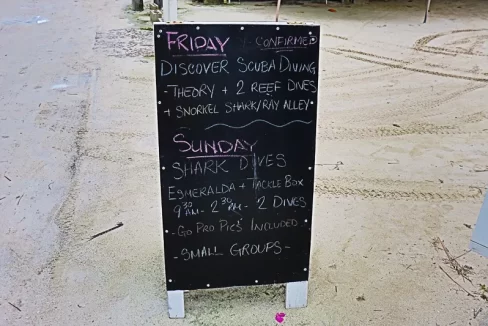 FRIDAY - CONFIRMED
DISCOVER SCUBA DIVING
- THEORY + 2 REEF DIVES
+ SNORKEL SHARK/RAY ALLEY
SUNDAY
SHARK DIVES
ESMERALDA + TACKLE BOX
9:30 AM - 2:30 PM - 2 DIVES
- GO PRO PICS INCLUDED
- SMALL GROUPS -